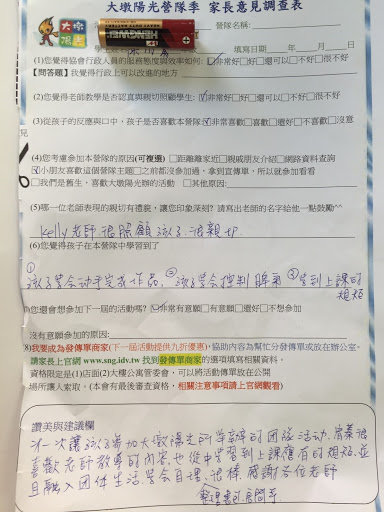 大墩陽光營隊季 家長意見調查表
大墩
陽光
營隊名稱:
HENGWEI
填寫日期 年 月 日
(1)您覺得協會行政人員的服務態度與效率如何: ☑非常好□好□還可以□不好□很不好
【問答題】我覺得行政上可以改進的地方
(2)您覺得老師教學是否認真與親切照顧學生: ☑非常好□好□還可以□不好□很不好
(3)從孩子的反應與口中，孩子是否喜歡本營隊☑非常喜歡□喜歡□還好□不喜歡□沒意
(4)您考慮參加本營隊的原因(可複選) □距離離家近□親戚朋友介紹□網路資料查詢
☑小朋友喜歡這個營隊主題□之前都沒參加過，拿到宣傳單，所以就參加看看
□我們是舊生，喜歡大墩陽光辦的活動 □其他原因:
(5)哪一位老師表現的親切有禮貌，讓您印象深刻? 請寫出老師的名字給他一點鼓勵^^
Kelly老師很照顧孩子，很親切.
(6)您覺得孩子在本營隊中學習到了
①孩子學會動手完成作品, ②孩子學會控制脾氣 ③學到上課的規矩
為您還會想參加下一屆的活動嗎? ☑非常有意願□有意願□還好□不想參加
沒有意願參加的原因:
8)我要成為發傳單商家(下一屆活動提供九折優惠)，協助內容為幫忙分發傳單或放在辦公室。
請家長上官網 www.sng.idv.tw 找到發傳單商家的選項填寫相關資料。
資格限定是(1)店面(2)大樓公寓管委會，可以將活動傳單放在公開
場所讓人索取。(本會有最後審查資格，相關注意事項請上官網觀看)
讚美與建議欄
第一次讓孩子參加大墩陽光所舉辦的團隊活動.
喜歡老師教導的內容,也從中學習到上課應有的規矩,並
且融入团体生活,學會自理,很棒.感謝各位老師